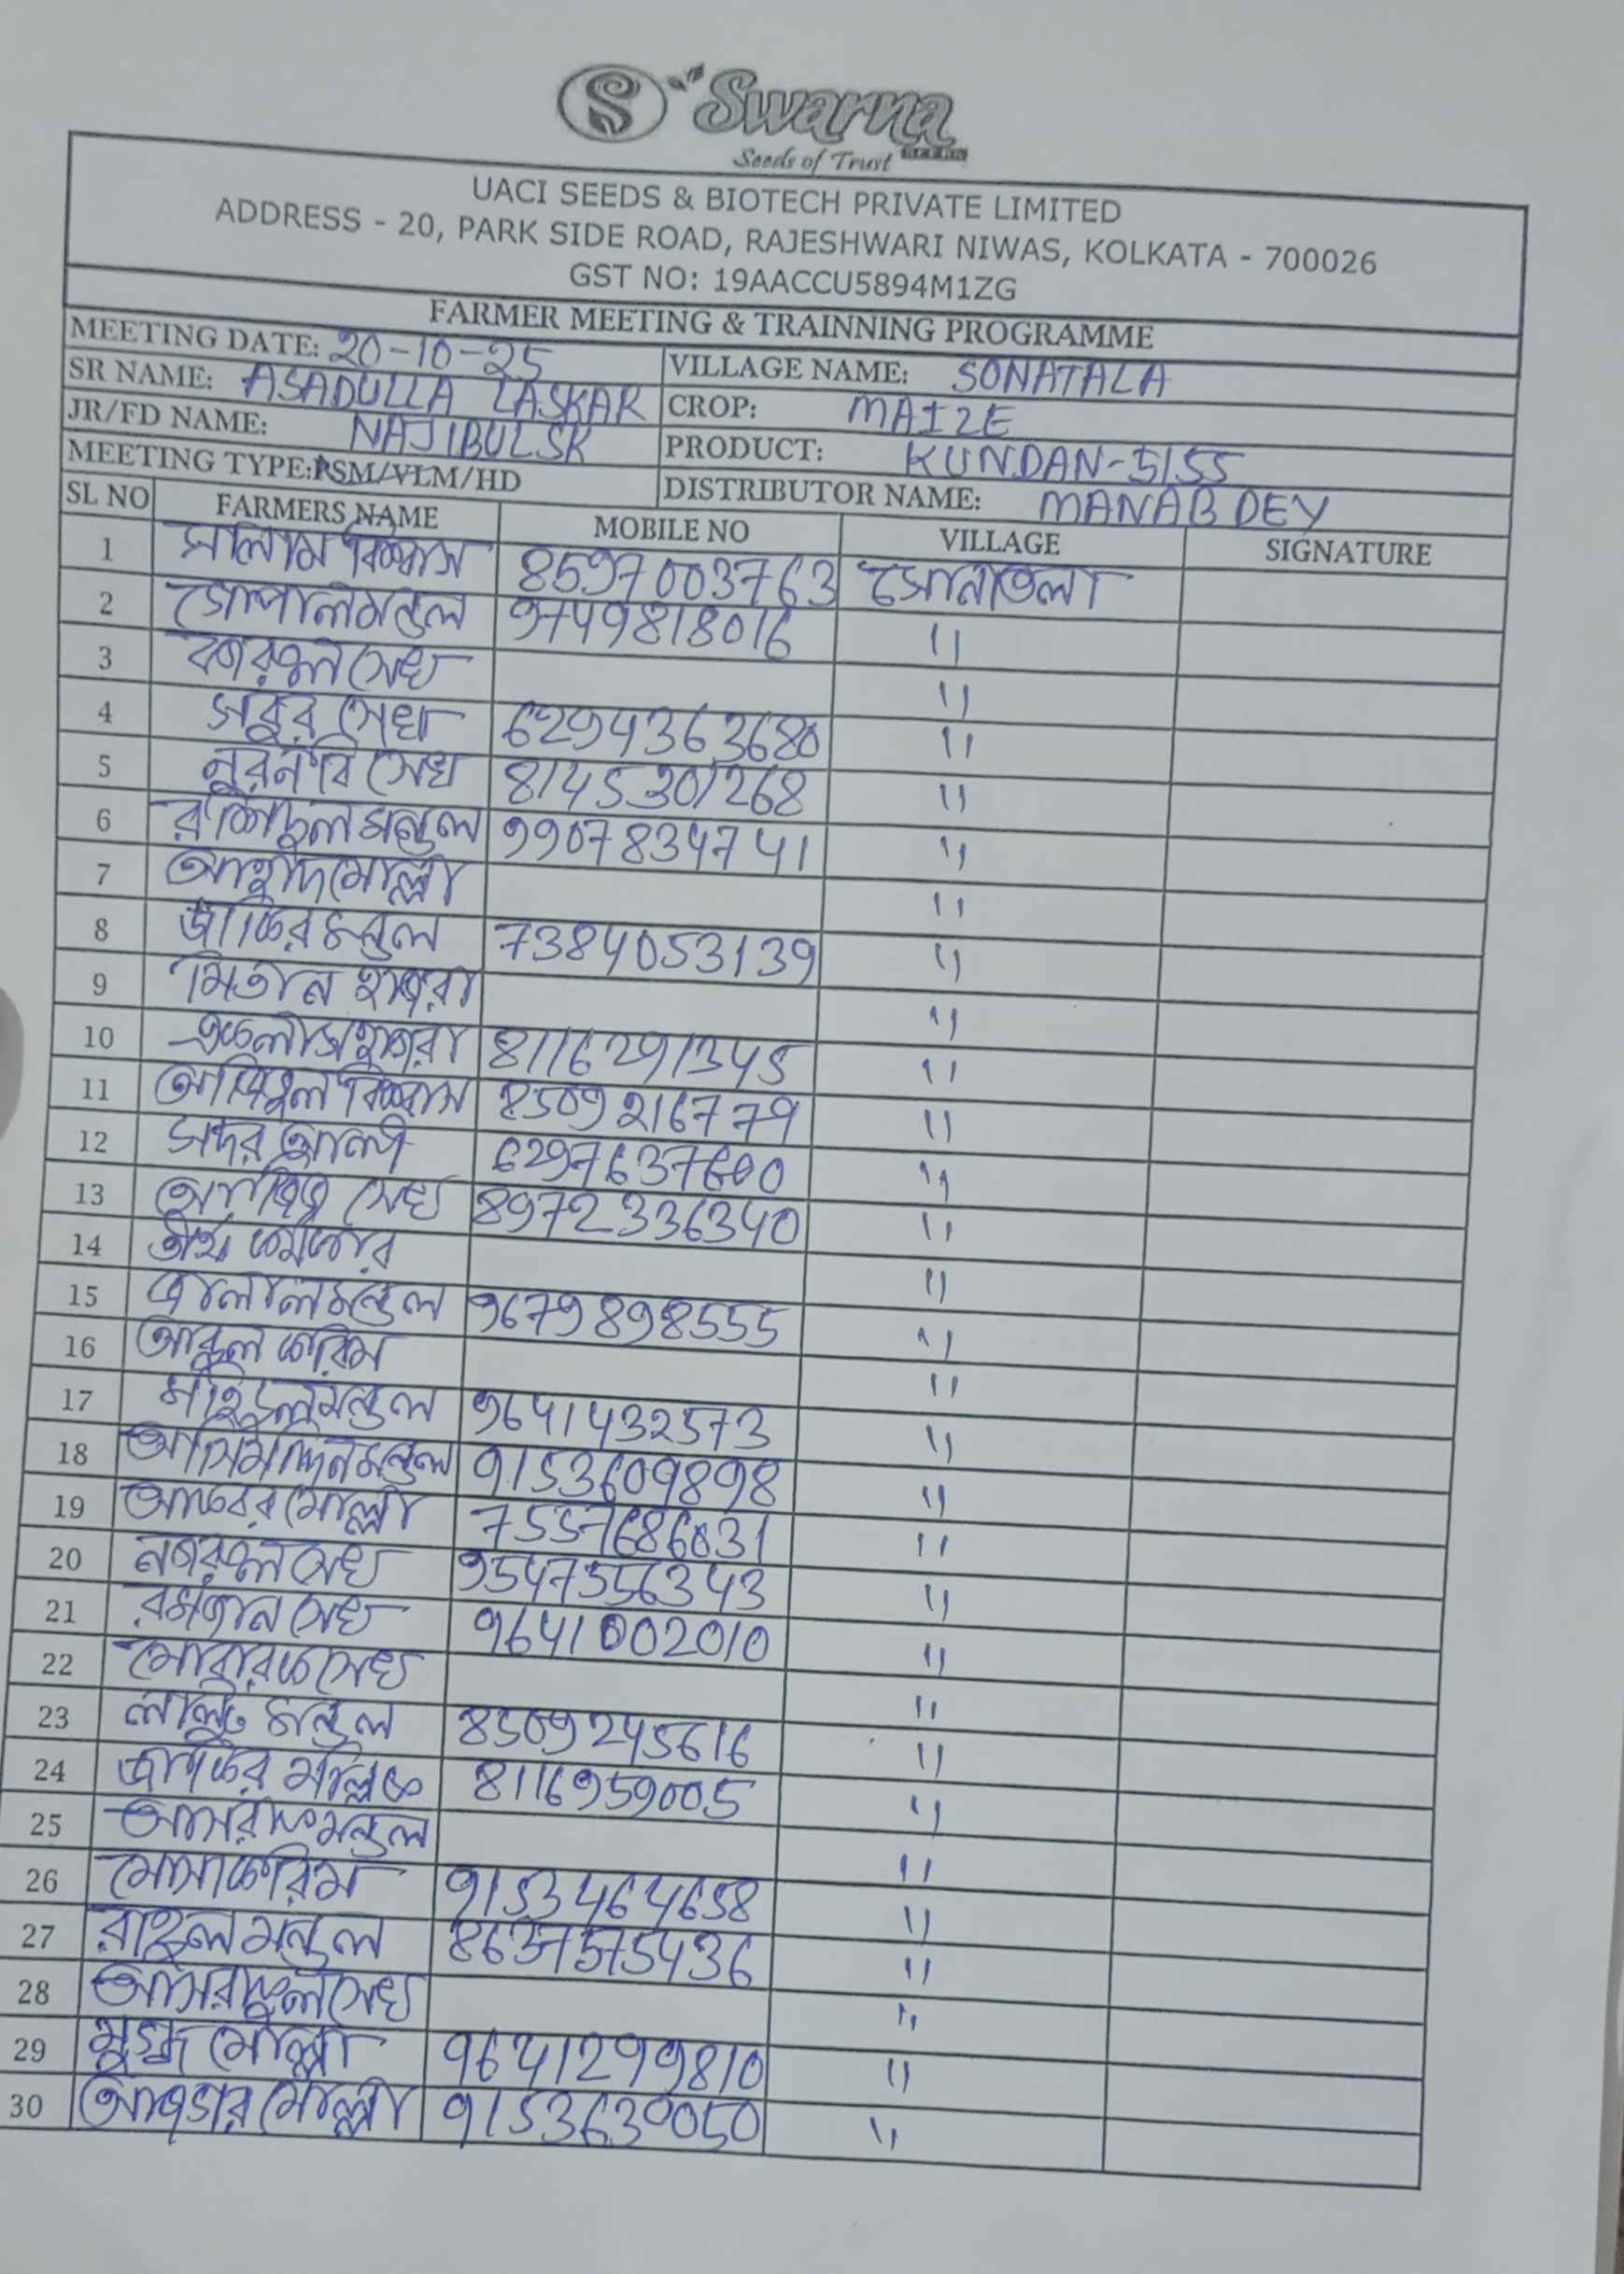 Swarna
Seeds of Trust
UACI SEEDS & BIOTECH PRIVATE LIMITED
ADDRESS - 20, PARK SIDE ROAD, RAJESHWARI NIWAS, KOLKATA - 700026
GST NO: 19AACCU5894M1ZG
FARMER MEETING & TRAINNING PROGRAMME
MEETING DATE: 20-10-25 VILLAGE NAME: SONATALA
SR NAME: ASADULLA LASKAR CROP: MAIZE
JR/FD NAME: NAJIBUL SK PRODUCT: KUNDAN-5155
MEETING TYPE: PSM/VLM/HD DISTRIBUTOR NAME: MANAB DEY
SL NO FARMERS NAME MOBILE NO VILLAGE SIGNATURE
1 সালাম বিশ্বাস 8597003763 সোনাতলা
2 গোপাল মন্ডল 9749818016 "
3 সেখ "
4 সবুর সেখ 6294363680 "
5 নুরনবি সেখ 8145301268 "
6 রশিদুল মন্ডল 9907834741 "
7 মোল্লা "
8 জাকির মন্ডল 7384053139 "
9 মিতান হাজরা "
10 হাজরা 8116291345 "
11 বিশ্বাস 8509216779 "
12 সদর আলী 6297637600 "
13 সেখ 8972336340 "
14 কর্মকার "
15 জালাল মন্ডল 9679898555 "
16 আব্দুল করিম "
17 মন্ডল 9641432573 "
18 মন্ডল 9153609898 "
19 আকবর মোল্লা 7557686031 "
20 নজরুল সেখ 9547556343 "
21 রমজান সেখ 9641002010 "
22 মোবারক সেখ "
23 লালটু মন্ডল 8509245616 "
24 জাকির মল্লিক 8116959005 "
25 আসরাফ মন্ডল "
26 করিম 9153464658 "
27 রাহুল মন্ডল 8637575436 "
28 আসরাফুল সেখ "
29 মোল্লা 9641299810 "
30 মোল্লা 9153630050 "